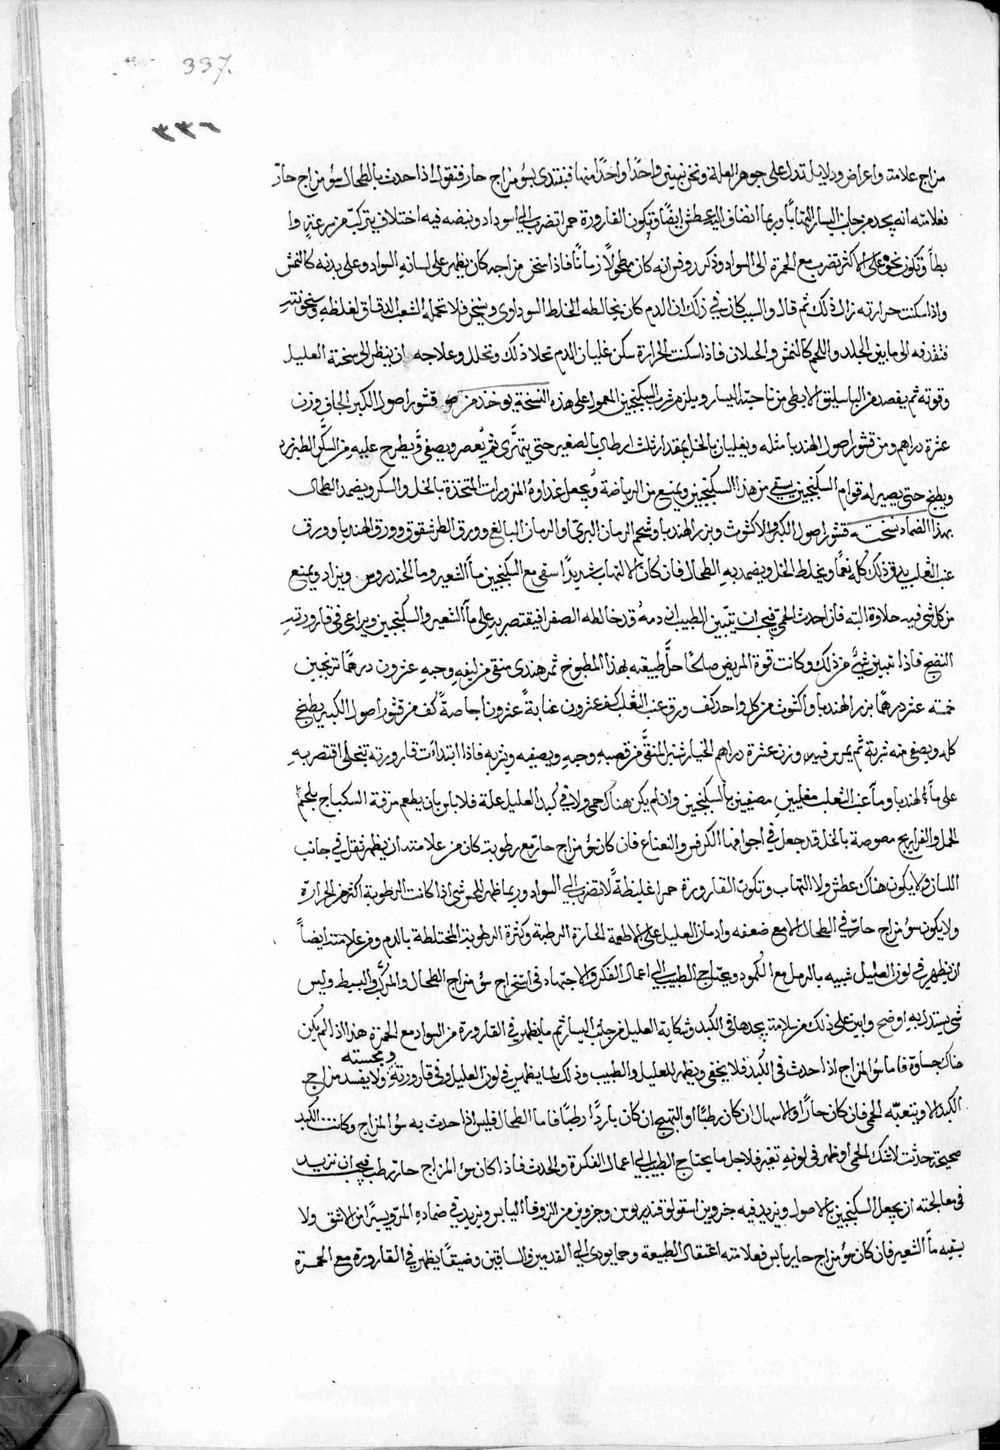 337.
٣٣٦
مزاج علامة واعراض ودلايل تدل على جوهر العلة ونحن نبين واحدًا واحدًا منها فنبتدى بسؤ مزاج حار فنقول اذا حدث بالطحال سؤ مزاج حار
فعلامته انه يجد من جانب اليسار التهابًا وربما انضاف اليه عطش ايضًا وتكون القارورة حمرا تضرب الى السواد ونبضه فيه اختلاف يتركب من سرعة وا
بطأ وتكون نحوه على الاكثر تضرب مع الحمرة الى السواد وذكر روفس انه كان مطحولًا زمانًا فاذا سخن مزاجه كان يظهر على لسانه السواد وعلى بدنه كالنمش
واذا سكنت حرارته زال ذلك ثم قال والسبب كان في ذلك ان الدم كان يخالطه الخلط السوداوى ويسخن فلا تحمله الشعب الدقاق لغلظه وسخونته
فتقذفه الى ما بين الجلد واللحم كالنمش والخيلان فاذا سكنت الحرارة سكن غليان الدم تحلل ذلك وتحلل وعلاجه ان ينظر الى سحنة العليل
وقوته ثم يفصد من الباسليق الابطى من ناحية اليسار ويلزم شرب السكنجبين المعمول على هذه النسخة يوخذ من قشور اصول الكبر الجاف وزن
عشرة دراهم ومن قشور اصول الهندبا مثله ويغليان بالخل بمقدار ثلث ارطال بالصغير حتى يتهرى ثم يُعصر ويصفى ويطرح عليه من السكر الطبرزد
ويطبخ حتى يصير له قوام السكنجبين يسقى من هذا السكنجبين ويمنع من الرياضة ويجعل غداوه المزورات المتخذة بالخل والسكر ويضمد الطحال
بهذا الضماد نسخته قشور اصول الكبر والاكشوث وبزر الهندبا وشحم الرمان البرى او الرمان البالغ وورق الطرشقوق وورق الهندبا وورق
عنب الثعلب يدق ذلك كله نعمًا ويخلط بالخل ويضمد به الطحال فان كان الالتهاب شديدًا سقى مع السكنجبين ماء الشعير وما الخندروس ويزاد ويمنع
من كل شى فيه حلاوة البته فان احدث الحمى فيجب ان يتبين الطبيب ان دمهُ قد خالطه الصفرا فيقتصر به على ماء الشعير والسكنجبين ويراعى فى قارورته
النضج فاذا تبين شىء من ذلك وكانت قوة المريض صالحًا حل طبيعته بهذا المطبوخ تمر هندى منقى من ليفه وحبه عشرون درهمًا ترنجبين
خمسة عشر درهمًا بزر الهندبا واكشوث من كل واحد كف ورق عنب الثعلب كف عشرون عنابةً عشرون اجاصةً كف من قشور اصول الكبر يطبخ
كله ويصفى منه شربة ثم يمرس فيه وزن عشرة دراهم الخيار شنبر المنقى من قصبه وحبه ويصفيه ويشربه فاذا ابتدأت قارورته تنجلى اقتصر به
على ماء الهندبا وماء عنب الثعلب مغليين مصفيين بالسكنجبين وان لم يكن هناك حمى ولا فى كبد العليل علة فلا باس بان يطعم مرقة السكباج بلحم
الحمل والفراريج مصوصة بالخل قد جعل فى اجوافها الكرفس والنعناع فان كان سؤ مزاج حار مع رطوبة كان من علامته ان يظهر ثقل فى جانب
اليسار ولا يكون هناك عطش ولا التهاب وتكون القارورة حمرا غليظةً لا تضرب الى السواد وربما ظهر الحمى شى اذا كانت الرطوبة اكثر من الحرارة
ولا يكون سؤ مزاج حار في الطحال الا مع ضعفه وادمان العليل على الاطعمة الحارة الرطبة وكثرة الرطوبة المختلطة بالدم ومن علامته ايضًا
ان يظهر في لون العليل شبيه بالرمل مع الكمود ويحتاج الطبيب الى اعمال الفكر والاجتهاد فى استخراج سؤ مزاج الطحال والمركب والبسيط وليس
شى يستدل به اوضح وابين على ذلك من سلامة يجدها فى الكبد وشكاية العليل من جانب اليسار ثم ما يظهر في القارورة من السواد مع الحمرة هذا اذا لم يكن
هناك جساوة فاما سؤ المزاج اذا حدث فى الكبد فلا يخفى ويظهر للعليل والطبيب وذلك لما يظهر فى لون العليل وفى قارورته ومجسته ولا يفسد مزاج
الكبد الا وتتبعه الحمى فان كان حارًا والاسهال ان كان رطبًا او التهيج ان كان باردًا رطبًا فاما الطحال فليس اذا حدث به سؤ المزاج وكانت الكبد
صحيحة حدثت لا شك الحمى او ظهر فى لونه تغير فلاجل ما يحتاج الطبيب الى اعمال الفكرة والحدث فاذا كان سؤ المزاج حار رطب فيجب ان تزيد
فى معالجته ان يجعل السكنجبين بالاصول ويزيد فيه جزوين اسقولوقندريون وجزوين من الزوفا اليابس ويزيد في ضماده المر ويسيرًا من الاشق ولا
يسقيه ماء الشعير فان كان سؤ مزاج حار يابس فعلامته اعتقال الطبيعة وحما يودى الى القدمين والساقين وضيقًا يظهر في القارورة مع الحمرة